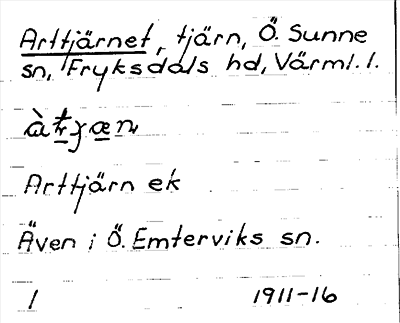 Arttjärnet, tjärn, Ö. Sunne
sn, Fryksdals hd, Värml. l.
Arttjärn ek
Även i Ö. Emterviks sn.
1 1911-16